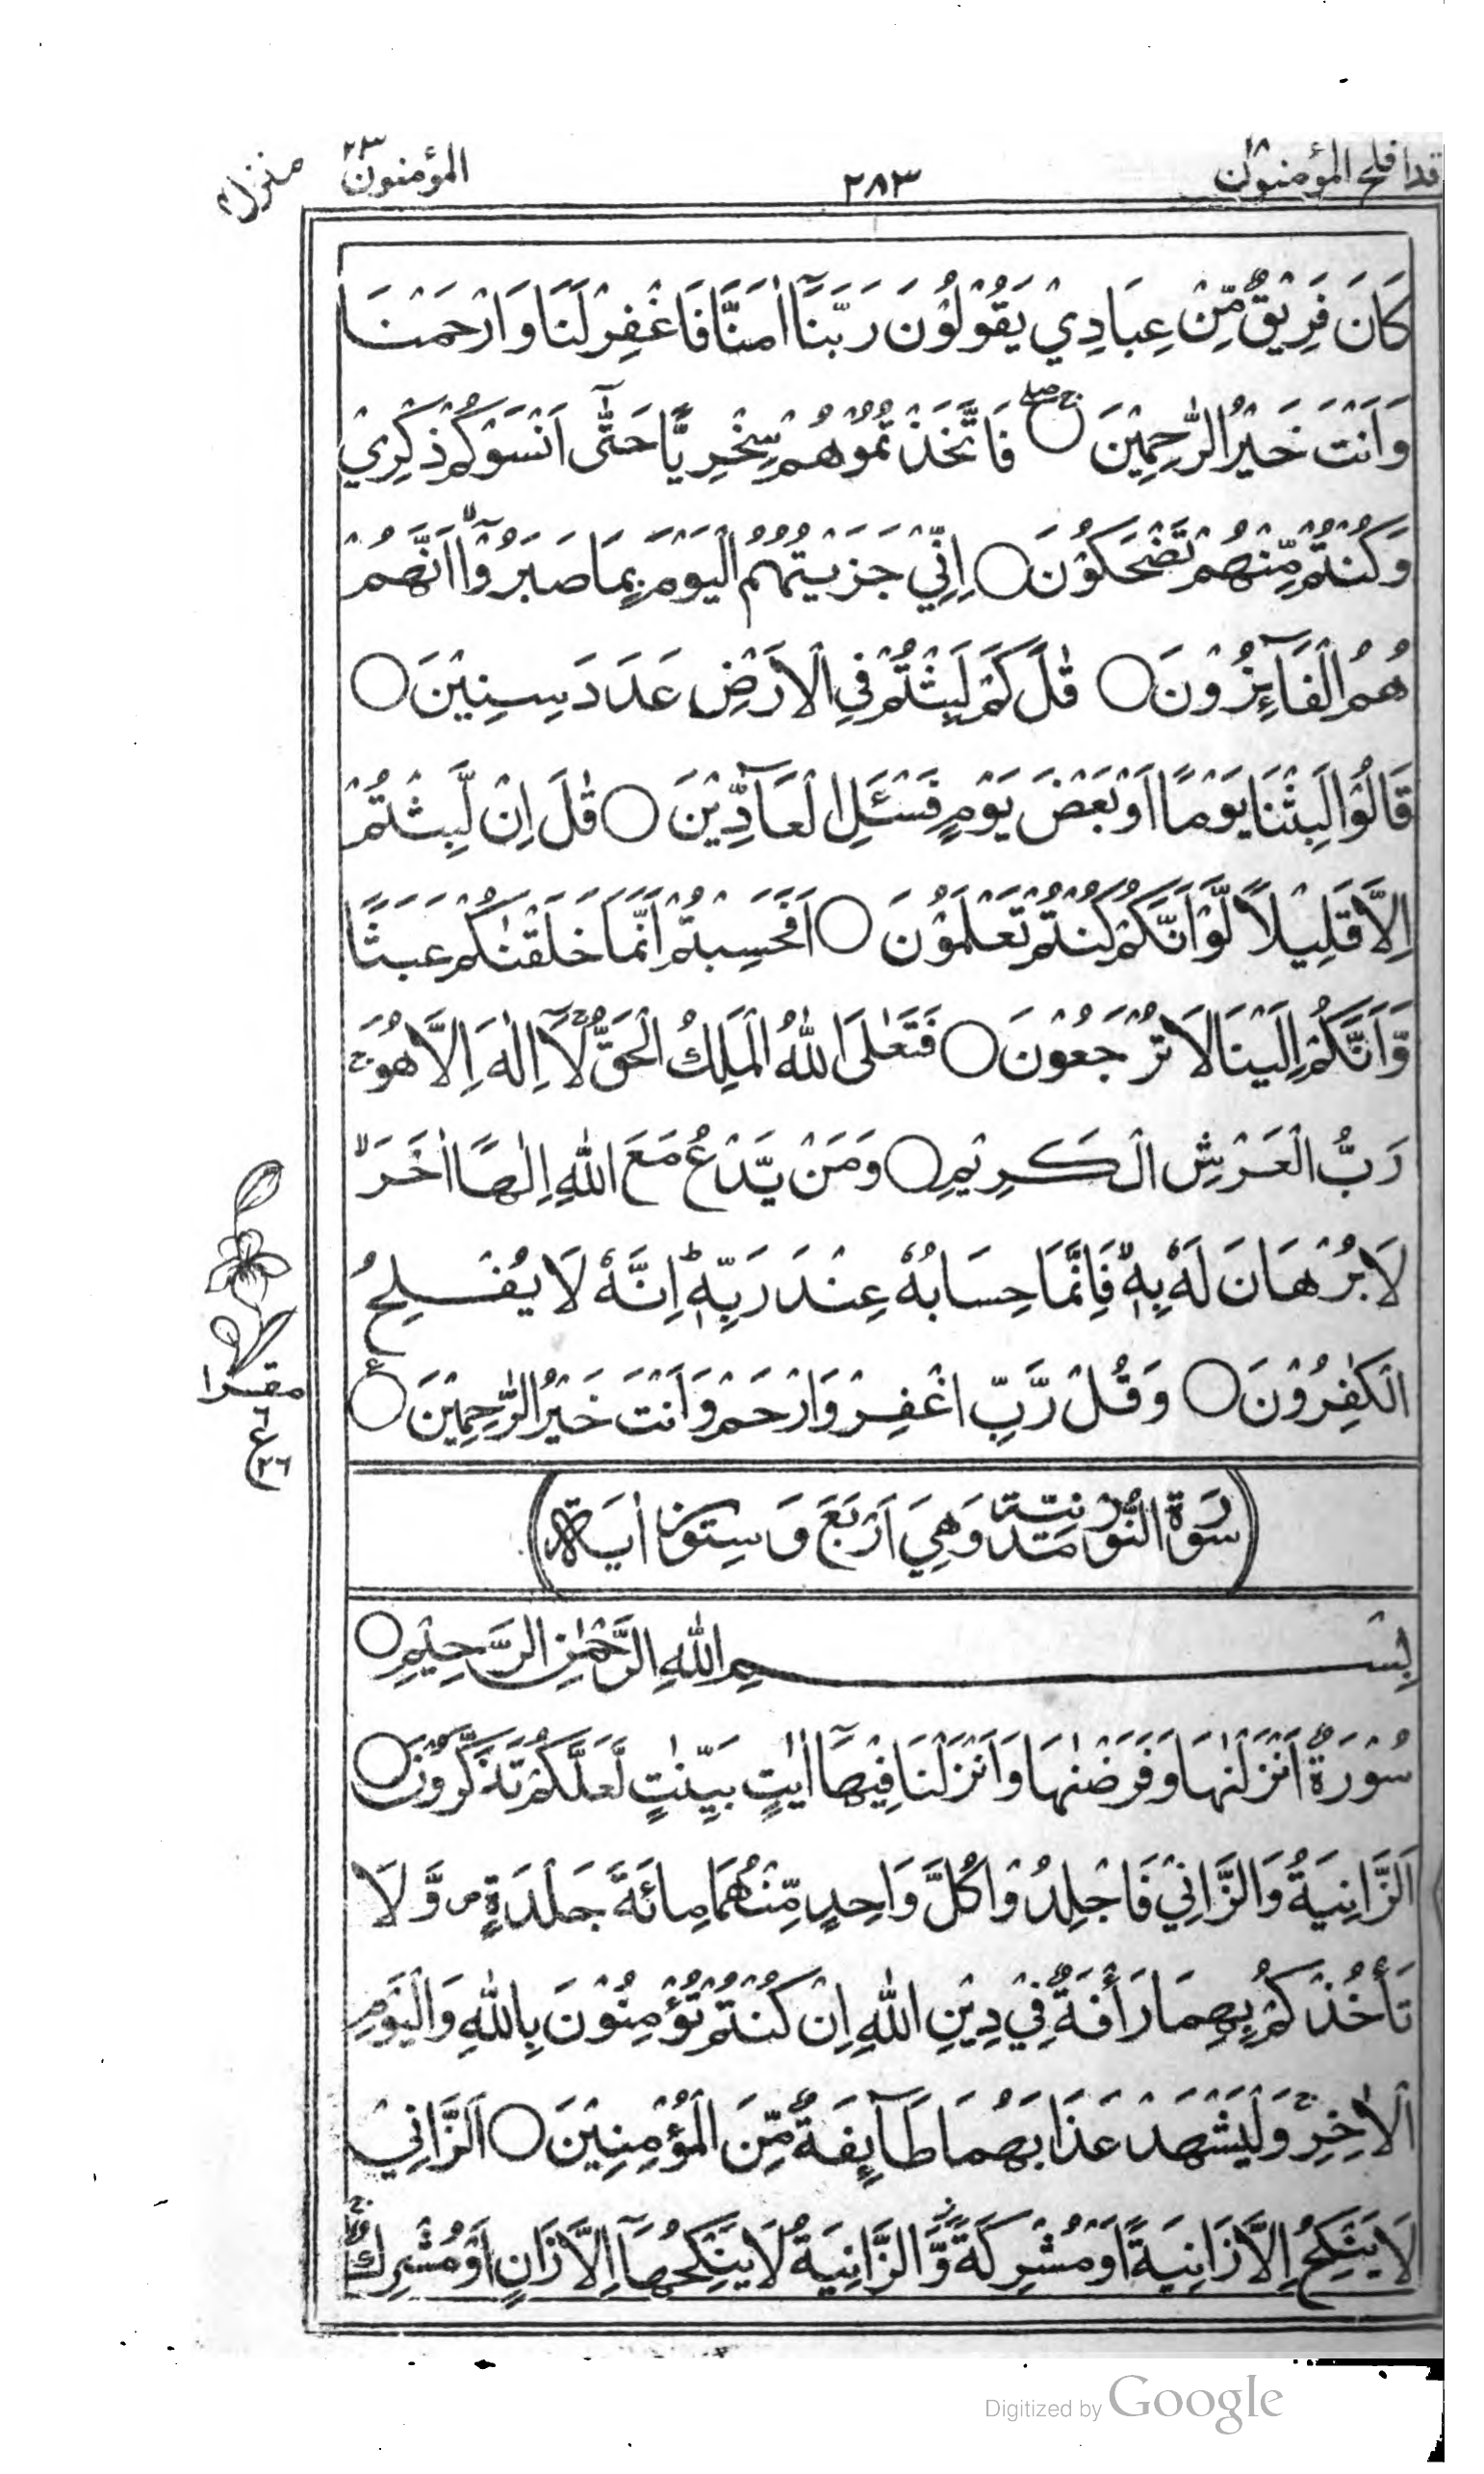 قد افلح المؤمنون ١٨
٢٨٣
المؤمنون ٢٣
منزل ٤
كَانَ فَرِيْقٌ مِّنْ عِبَادِيْ يَقُوْلُوْنَ رَبَّنَآ اٰمَنَّا فَاغْفِرْ لَنَا وَارْحَمْنَا
وَاَنْتَ خَيْرُ الرّٰحِمِيْنَ ○ فَاتَّخَذْتُمُوْهُمْ سِخْرِيًّا حَتّٰٓى اَنْسَوْكُمْ ذِكْرِيْ
وَكُنْتُمْ مِّنْهُمْ تَضْحَكُوْنَ ○ اِنِّيْ جَزَيْتُهُمُ الْيَوْمَ بِمَا صَبَرُوْٓا ۙ اَنَّهُمْ
هُمُ الْفَآئِزُوْنَ ○ قٰلَ كَمْ لَبِثْتُمْ فِي الْاَرْضِ عَدَدَ سِنِيْنَ ○
قَالُوْا لَبِثْنَا يَوْمًا اَوْ بَعْضَ يَوْمٍ فَسْئَلِ الْعَآدِّيْنَ ○ قٰلَ اِنْ لَّبِثْتُمْ
اِلَّا قَلِيْلًا لَّوْ اَنَّكُمْ كُنْتُمْ تَعْلَمُوْنَ ○ اَفَحَسِبْتُمْ اَنَّمَا خَلَقْنٰكُمْ عَبَثًا
وَّاَنَّكُمْ اِلَيْنَا لَا تُرْجَعُوْنَ ○ فَتَعٰلَى اللّٰهُ الْمَلِكُ الْحَقُّ ۚ لَآ اِلٰهَ اِلَّا هُوَ ۚ
رَبُّ الْعَرْشِ الْكَرِيْمِ ○ وَمَنْ يَّدْعُ مَعَ اللّٰهِ اِلٰهًا اٰخَرَ ۙ
لَا بُرْهَانَ لَهٗ بِهٖ ۙ فَاِنَّمَا حِسَابُهٗ عِنْدَ رَبِّهٖ ؕ اِنَّهٗ لَا يُفْلِحُ
الْكٰفِرُوْنَ ○ وَقُلْ رَّبِّ اغْفِرْ وَارْحَمْ وَاَنْتَ خَيْرُ الرّٰحِمِيْنَ ○ ع
مقرا
٦
ع
٢٦
(سُوْرَةُ النُّوْرِ مَدَنِيَّةٌ وَهِيَ اَرْبَعٌ وَسِتُّوْنَ اٰيَةً)
بِسْمِ اللّٰهِ الرَّحْمٰنِ الرَّحِيْمِ ○
سُوْرَةٌ اَنْزَلْنٰهَا وَفَرَضْنٰهَا وَاَنْزَلْنَا فِيْهَآ اٰيٰتٍ بَيِّنٰتٍ لَّعَلَّكُمْ تَذَكَّرُوْنَ ○
اَلزَّانِيَةُ وَالزَّانِيْ فَاجْلِدُوْا كُلَّ وَاحِدٍ مِّنْهُمَا مِائَةَ جَلْدَةٍ ۪ وَّلَا
تَأْخُذْكُمْ بِهِمَا رَأْفَةٌ فِيْ دِيْنِ اللّٰهِ اِنْ كُنْتُمْ تُؤْمِنُوْنَ بِاللّٰهِ وَالْيَوْمِ
الْاٰخِرِ ۚ وَلْيَشْهَدْ عَذَابَهُمَا طَآئِفَةٌ مِّنَ الْمُؤْمِنِيْنَ ○ اَلزَّانِيْ
لَا يَنْكِحُ اِلَّا زَانِيَةً اَوْ مُشْرِكَةً ۡ وَّالزَّانِيَةُ لَا يَنْكِحُهَآ اِلَّا زَانٍ اَوْ مُشْرِكٌ ۚ
Digitized by Google